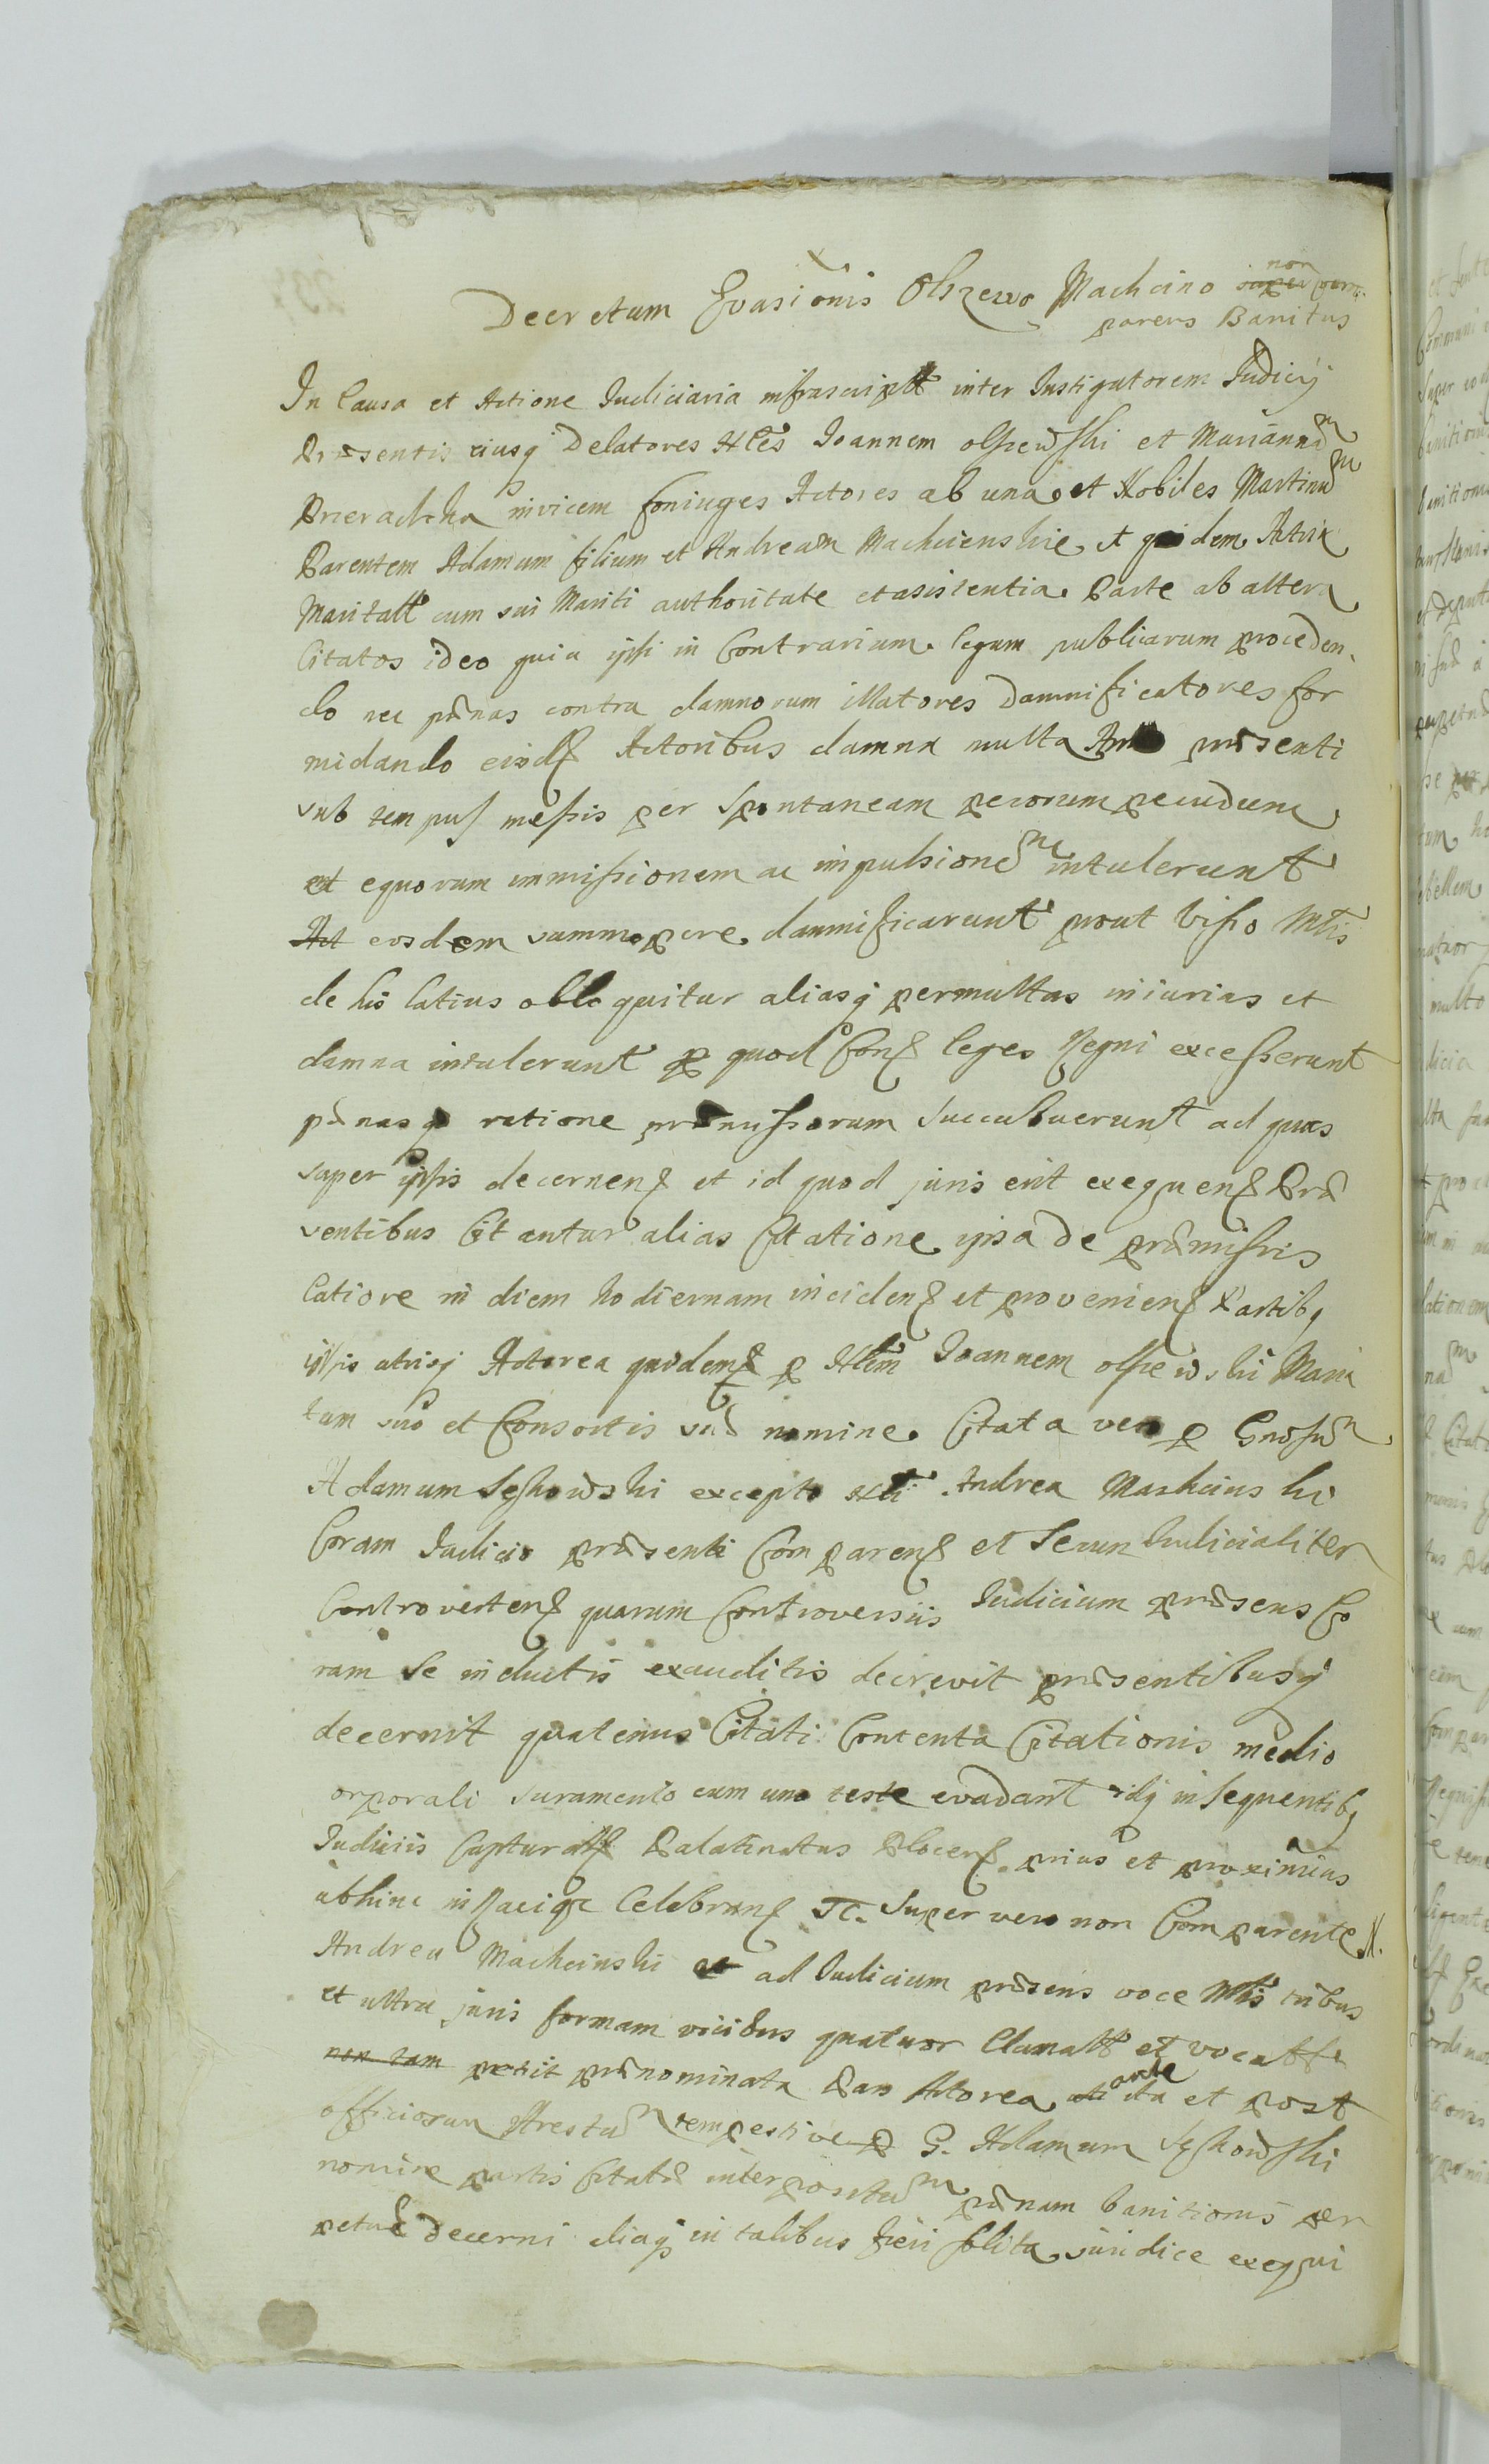 Decretum Evasionis Olszewo Machcino non
parens Banitus
In Causa et Actione Iudiciaria infrascriptt inter Instigatorem Iudicij
Præsentis eiusq Delatores Nles Ioannem olszewski et Mariannam
invicem Coniuges Actores ab una et Nobiles Martinum
Parentem Adamum filium et Andream Machcienskie et quidem
Maritatt cum sui Mariti authoritate et asistentia Parte ab altera
Citatos ideo quia ipsi in Contrarium legum publicarum proceden
do nec pænas contra damnorum illatores Damnificatores for
midando eisd Actoribus damna multa præsenti
sub tempus messis per spontaneam pecorum pecudum
et equorum immissionem ac impulsionem intulerunt
eosdem summopere damnificarunt prout Visio Mtis
de his latius obloquitur aliasq permultas iniurias et
damna intulerunt p quod Cons leges Regni excesserunt
pænasq ratione præmissorum succubuerunt ad quas
super ipsis decernen et id quod juris erit exequen Præ
sentibus Citantur alias Citatione ipsa de præmissis
latiore in diem hodiernam inciden et provenien Partibq
ipsis utrisq Actorea quidem p Nlem Ioannem olszewski Mari
tum suo et Consortis suæ nomine Citata vero p Gnosum
Adamum Seszkowski excepto Nli Andrea Machcinski
Coram Iudicio præsenti Comparen et Secum Iudicialiter
Controverten quarum Controversiis Iudicium præsens Co
ram Se inductis exauditis decrevit præsentibusq
decernit quatenus Citati Contenta Citationis medio
orporali Iuramento cum uno teste evadant idq in sequentibq
Iudiciis Captural Palatinatus Plocen prius et proximius
abhinc in Raciąz Celebran Tc. Super vero non Comparente N.
Andrea Machcinski ad Iudicium præsens voce Mtis tribus
et ultra juris formam vicibus quatuor Clamatt et vocatt
non tam petit prænominata Pars Actorea ante ita et post
officiosum Arestum tempestive p G. Adamum Seszkowski
nomine partis Citatæ interpositum pænam banitionis per
petuæ decerni aliaq in talibus fieri solita juridice exequi